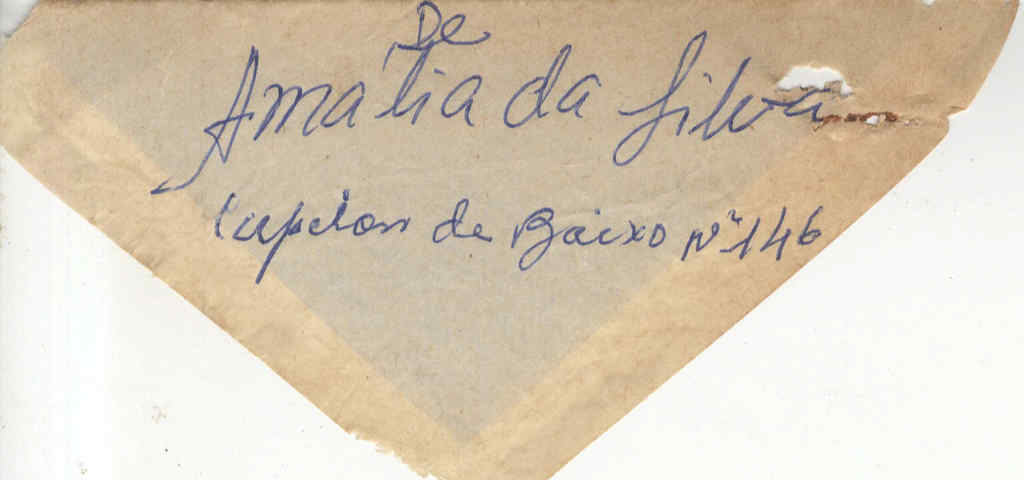 De
Amalia da Silva
Cupelon de Baixo Nº 146